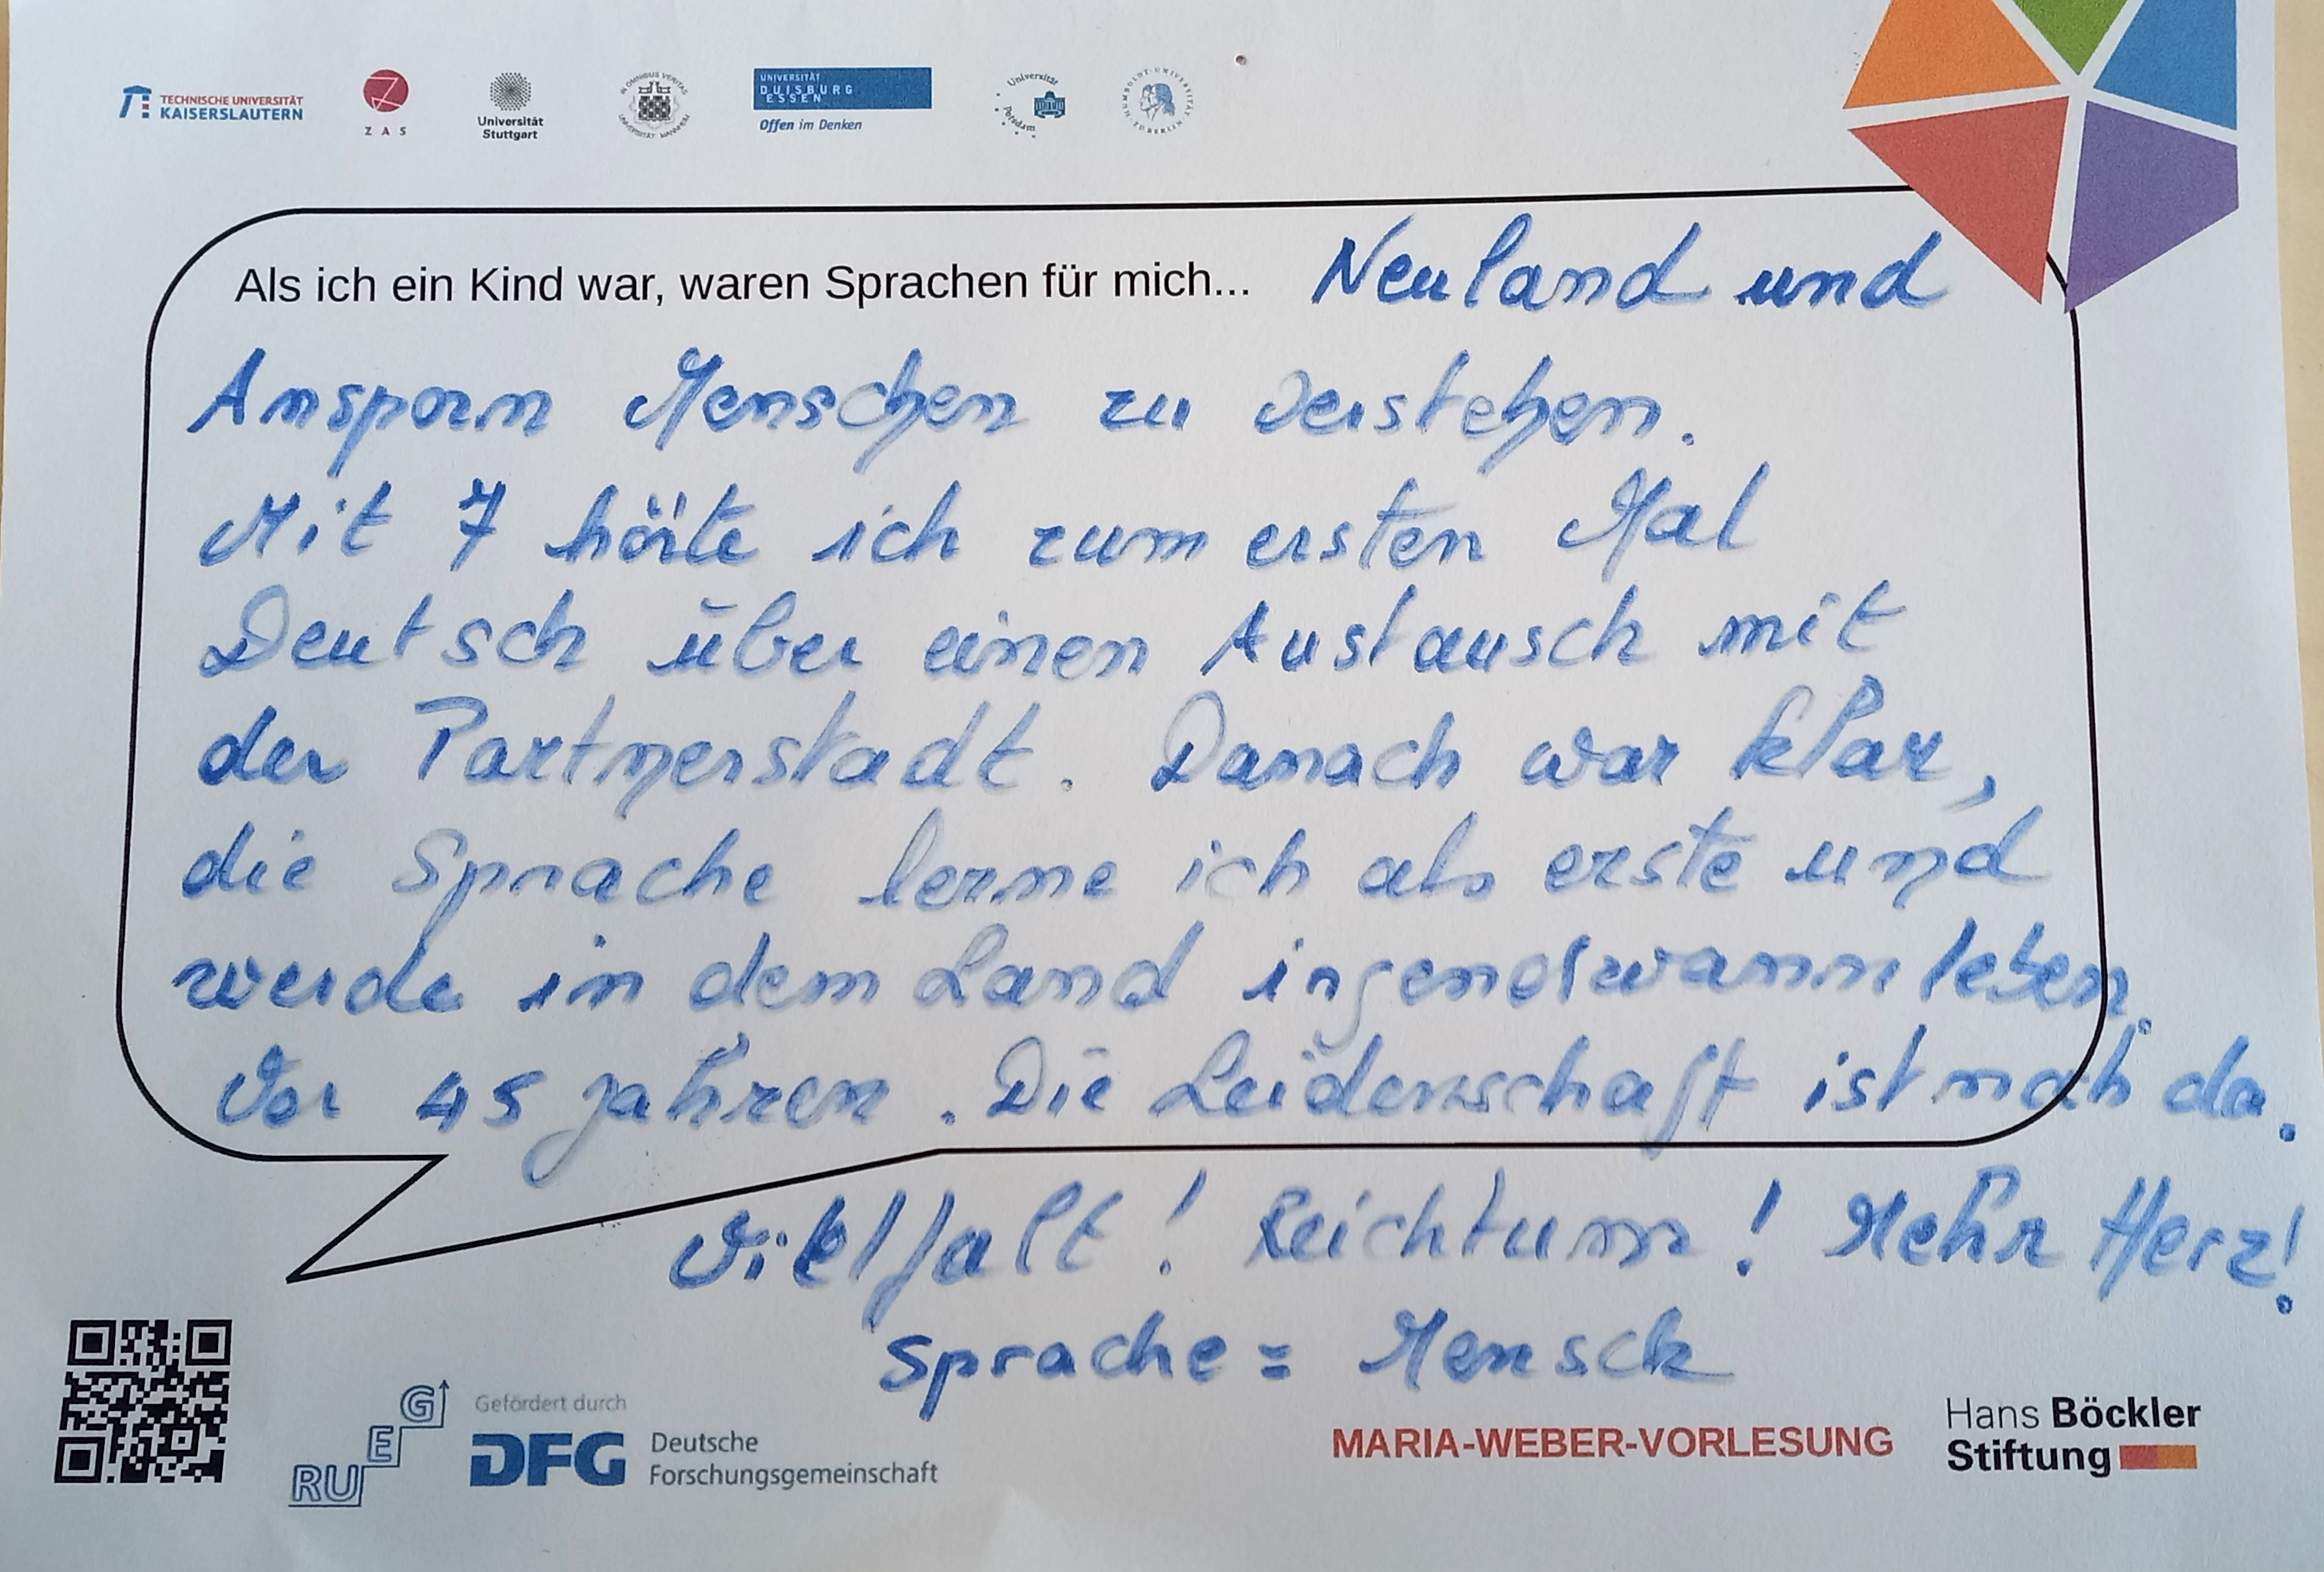 TECHNISCHE UNIVERSITÄT
KAISERSLAUTERN
ZAS
Universität
Stuttgart
IN OMNIBUS VERITAS
UNIVERSITÄT MANNHEIM
UNIVERSITÄT
DUISBURG
ESSEN
Offen im Denken
Universität
Potsdam
HUMBOLDT-UNIVERSITÄT ZU BERLIN
Als ich ein Kind war, waren Sprachen für mich... Neuland und
Ansporn Menschen zu verstehen.
Mit 7 hörte ich zum ersten Mal
Deutsch über einen Austausch mit
der Partnerstadt. Danach war klar,
die Sprache lerne ich als erste und
werde in dem Land irgendwann leben.
Vor 45 Jahren. Die Leidenschaft ist noch da.
Vielfalt! Reichtum! Mehr Herz!
Sprache = Mensch
RUEG
Gefördert durch
DFG Deutsche
Forschungsgemeinschaft
MARIA-WEBER-VORLESUNG
Hans Böckler
Stiftung